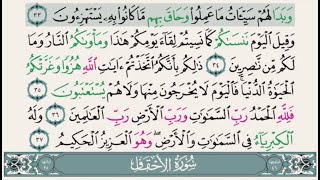 وَبَدَا لَهُمْ سَيِّـَٔاتُ مَا عَمِلُوا۟ وَحَاقَ بِهِم مَّا كَانُوا۟ بِهِۦ يَسْتَهْزِءُونَ ٣٣
وَقِيلَ ٱلْيَوْمَ نَنسَىٰكُمْ كَمَا نَسِيتُمْ لِقَآءَ يَوْمِكُمْ هَٰذَا وَمَأْوَىٰكُمُ ٱلنَّارُ وَمَا
لَكُم مِّن نَّٰصِرِينَ ٣٤ ذَٰلِكُم بِأَنَّكُمُ ٱتَّخَذْتُمْ ءَايَٰتِ ٱللَّهِ هُزُوًا وَغَرَّتْكُمُ
ٱلْحَيَوٰةُ ٱلدُّنْيَا فَٱلْيَوْمَ لَا يُخْرَجُونَ مِنْهَا وَلَا هُمْ يُسْتَعْتَبُونَ ٣٥
فَلِلَّهِ ٱلْحَمْدُ رَبِّ ٱلسَّمَٰوَٰتِ وَرَبِّ ٱلْأَرْضِ رَبِّ ٱلْعَٰلَمِينَ ٣٦ وَلَهُ
ٱلْكِبْرِيَآءُ فِى ٱلسَّمَٰوَٰتِ وَٱلْأَرْضِ وَهُوَ ٱلْعَزِيزُ ٱلْحَكِيمُ ٣٧
سُورَةُ ٱلْأَحْقَافِ